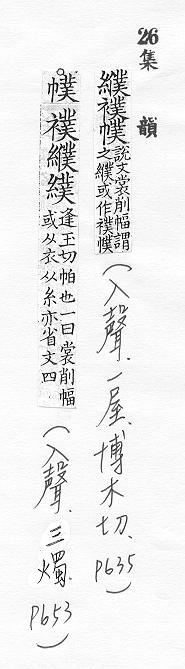 26 集 韻
纀襥幞說文裳削幅謂之纀或作襥幞(入聲.一屋.博木切、P635)
。幞襥纀逢玉切帕也一曰裳削幅或从衣从糸亦省文四(入聲.三燭.P653)